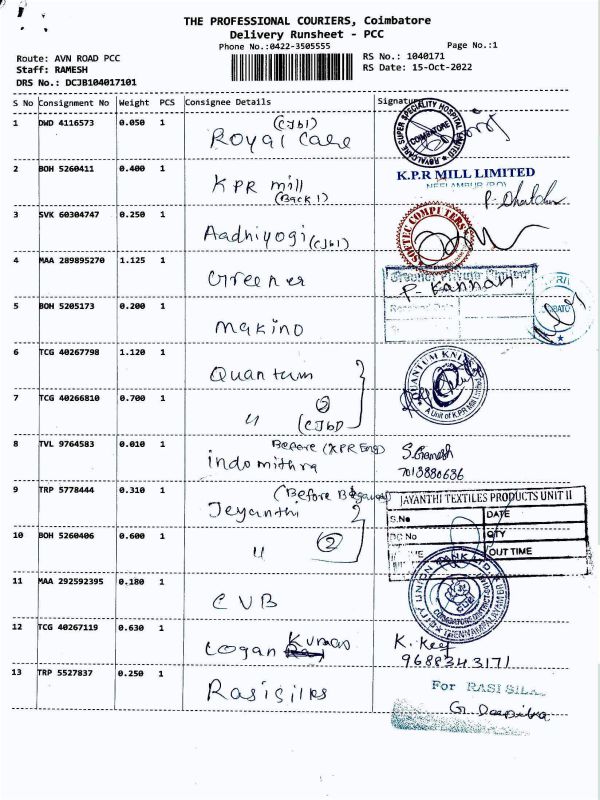 THE PROFESSIONAL COURIERS, Coimbatore
Delivery Runsheet - PCC
Phone No.:0422-3505555
Page No.:1
Route: AVN ROAD PCC
RS No.: 1040171
Staff: RAMESH
RS Date: 15-Oct-2022
DRS No.: DCJB104017101
S No Consignment No Weight PCS Consignee Details Signature
1 DWD 4116573 0.050 1 Royal Care (CJb1)
ROYALCARE SUPER SPECIALITY HOSPITAL LIMITED COIMBATORE
2 BOH 5260411 0.400 1 KPR mill (Back 1)
K.P.R MILL LIMITED
NEELAMBUR (P.O)
3 SVK 60304747 0.250 1 Aadhiyogi (CJb1)
SOFTEC COMPUTERS
4 MAA 289895270 1.125 1 Greener
P. Kannan
5 BOH 5205173 0.200 1 makino
6 TCG 40267798 1.120 1 Quantum
QUANTUM KNITS
A Unit of K.P.R Mill Limited
7 TCG 40266810 0.700 1 " 2
8 TVL 9764583 0.010 1 Before (KPR Eng)
indomithra
S. Ganesh
7013880636
9 TRP 5778444 0.310 1 (Before
Jeyanthi
JAYANTHI TEXTILES PRODUCTS UNIT II
S.No DATE
DC No QTY
OUT TIME
10 BOH 5260406 0.600 1 " 2
11 MAA 292592395 0.180 1 CVB
12 TCG 40267119 0.630 1 Logan Kumar
K. Kef
9688343171
13 TRP 5527837 0.250 1 Rasisilks
For RASI SIL
G. Deepika